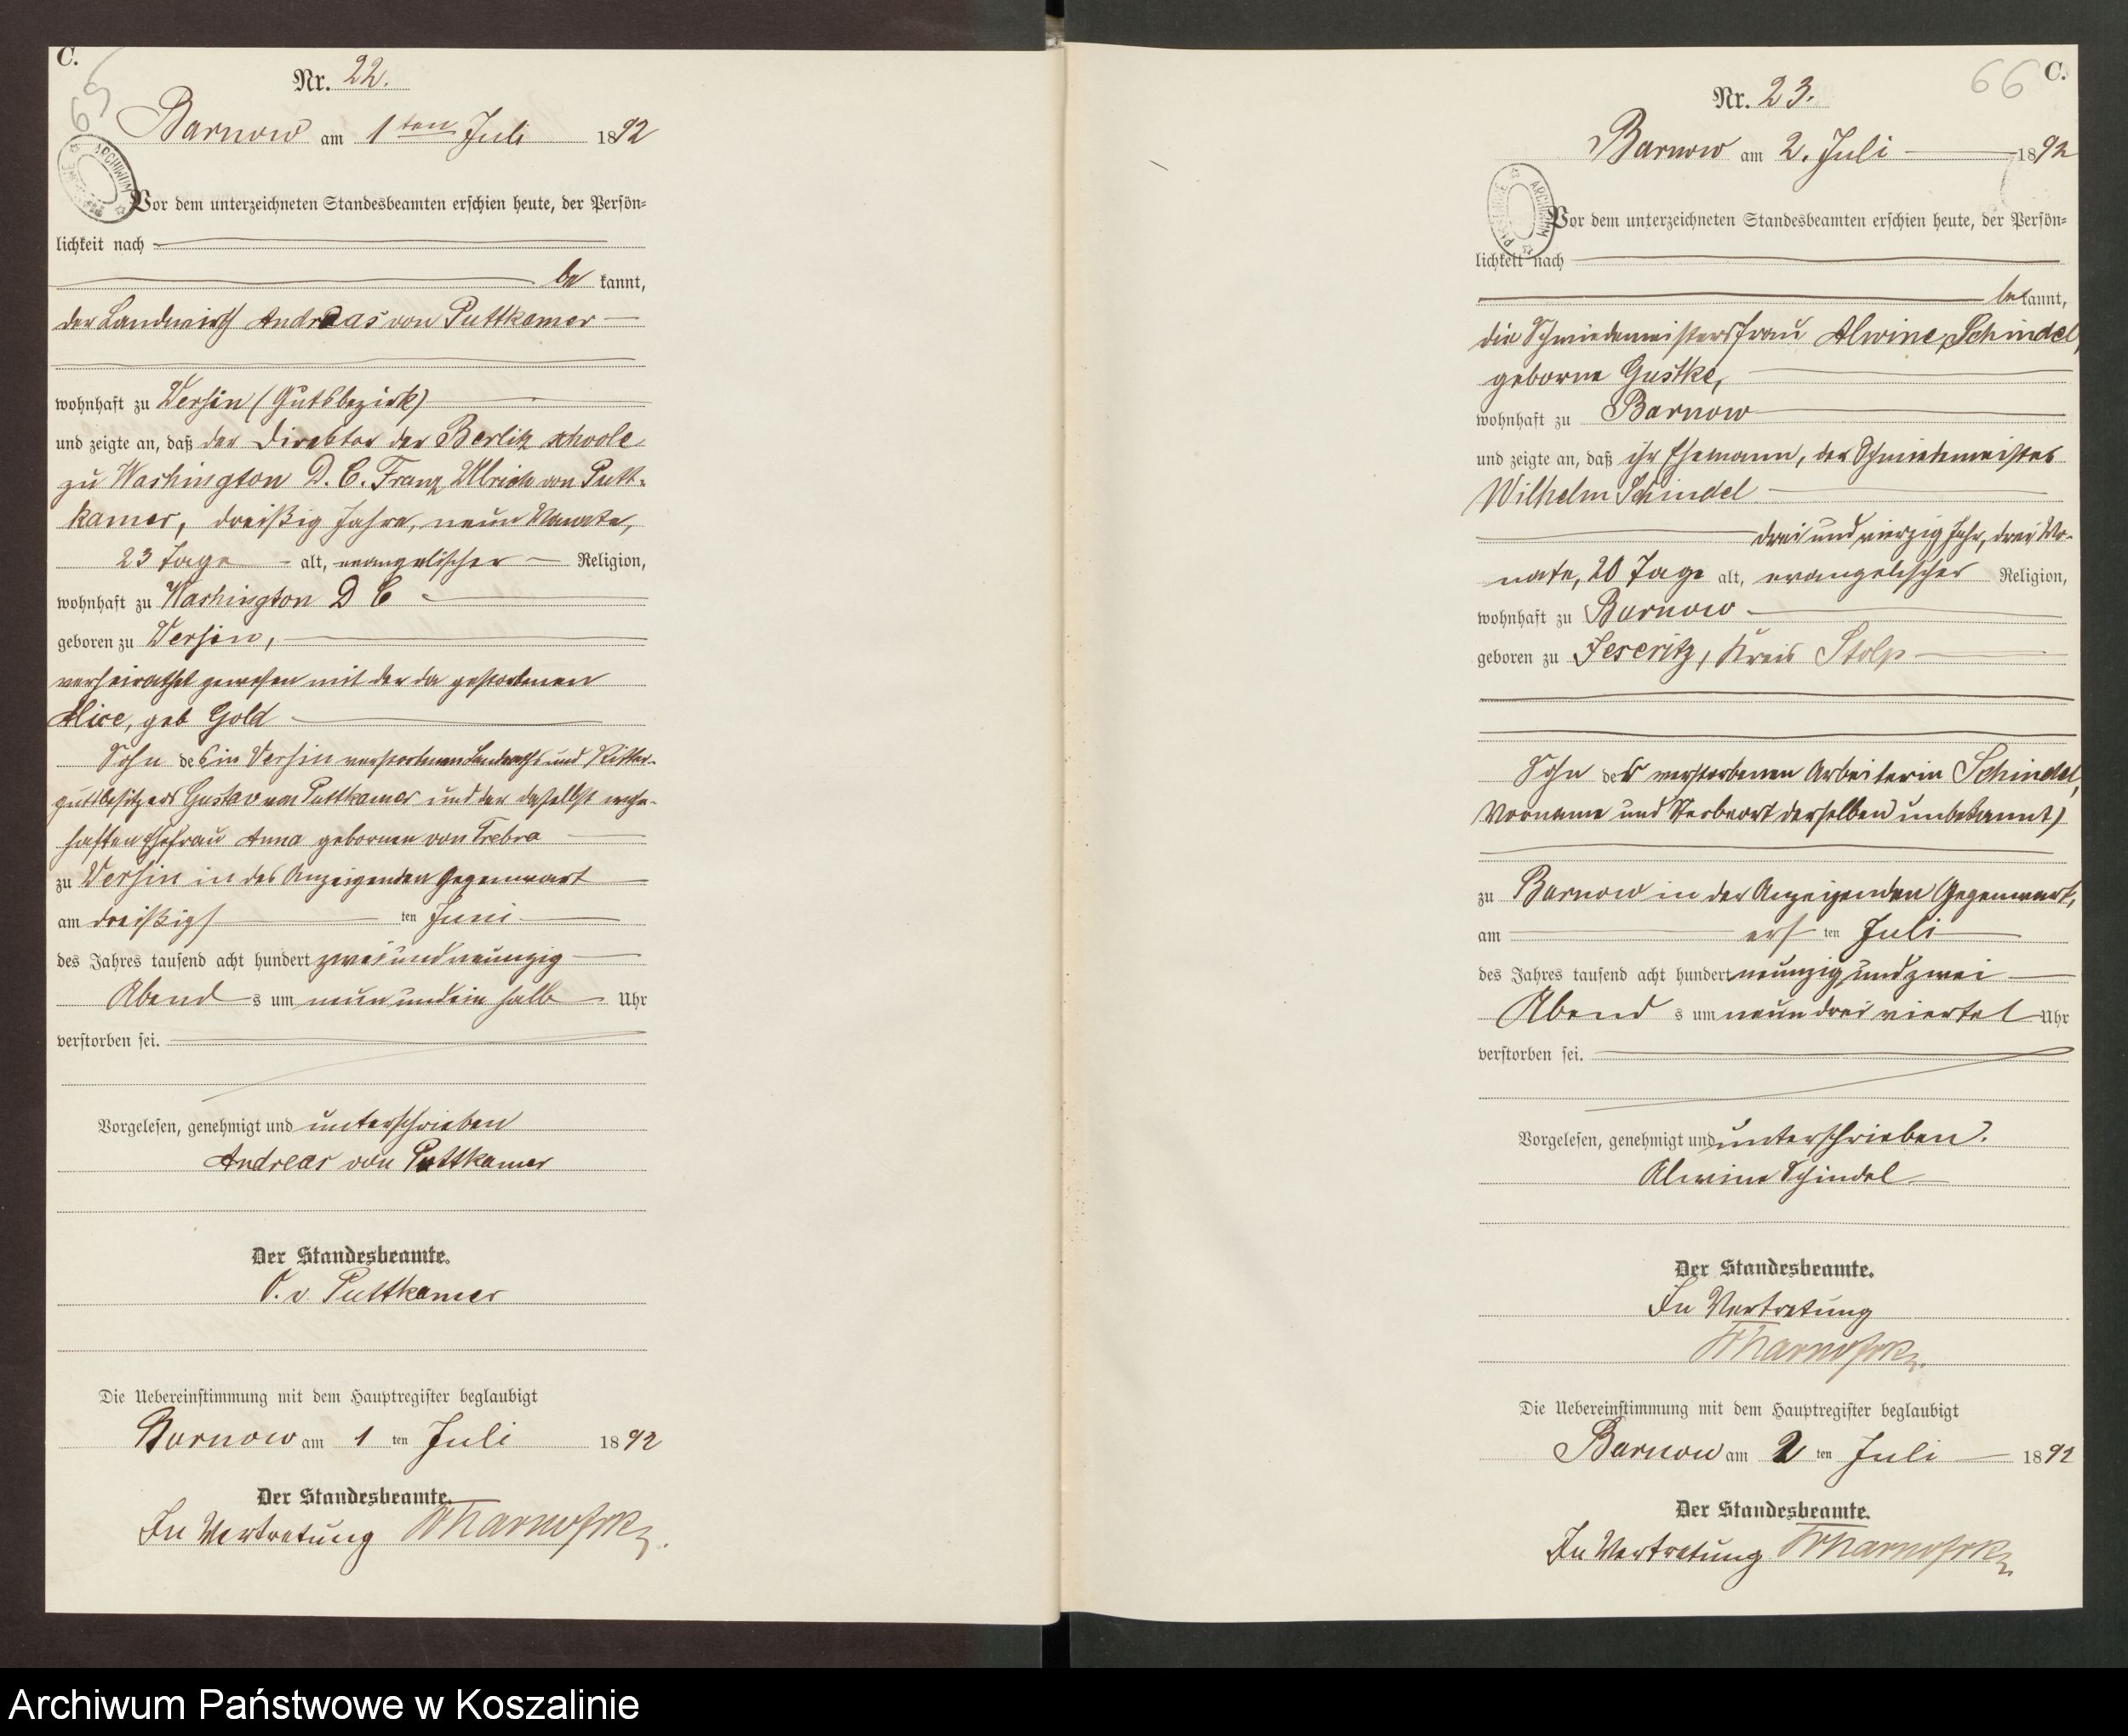 C.
65
Nr. 22.
Barnow am 1ten Juli 1892
ARCHIWUM
Vor dem unterzeichneten Standesbeamten erschien heute, der Persön-
lichkeit nach
be kannt,
der Landwirth Andreas von Puttkamer
wohnhaft zu Versin (Gutsbezirk)
und zeigte an, daß der Direktor der Berlitz schoole
zu Washington D. C. Franz Ulrich von Putt-
kamer, dreißig Jahre, neun Monate,
23 Tage alt, evangelischer Religion,
wohnhaft zu Washington D C
geboren zu Versin,
verheirathet gewesen mit der da gestorbenen
Alice, geb Gold
Sohn des in Versin verstorbenen Landraths und Ritter-
gutsbesitzers Gustav von Puttkamer und der daselbst wohn-
haften Ehefrau Anna gebornen von Trebra
zu Versin in des Anzeigenden Gegenwart
am dreißigs ten Juni
des Jahres tausend acht hundert zwei und neunzig
Abend s um neun und ein halb Uhr
verstorben sei.
Vorgelesen, genehmigt und unterschrieben
Andreas von Puttkamer
Der Standesbeamte.
O. v. Puttkamer
Die Uebereinstimmung mit dem Hauptregister beglaubigt
Barnow am 1 ten Juli 1892
Der Standesbeamte.
In Vertretung
66
C.
Nr. 23.
Barnow am 2. Juli 1892
ARCHIWUM
Vor dem unterzeichneten Standesbeamten erschien heute, der Persön-
lichkeit nach
be kannt,
die Schmiedemeistersfrau Alwine Schindel,
geborne Gustke,
wohnhaft zu Barnow
und zeigte an, daß ihr Ehemann, der Schmiedemeister
Wilhelm Schindel
drei und vierzig Jahr, drei Mo-
nate, 20 Tage alt, evangelischer Religion,
wohnhaft zu Barnow
geboren zu Jeseritz, Kreis Stolp
Sohn der verstorbenen Arbeiterin Schindel,
Vorname und Sterbeort derselben unbekannt)
zu Barnow in der Anzeigenden Gegenwart,
am ers ten Juli
des Jahres tausend acht hundert neunzig und zwei
Abend s um neun drei viertel Uhr
verstorben sei.
Vorgelesen, genehmigt und unterschrieben.
Alwine Schindel
Der Standesbeamte.
In Vertretung
Die Uebereinstimmung mit dem Hauptregister beglaubigt
Barnow am 2 ten Juli 1892
Der Standesbeamte.
In Vertretung
Archiwum Państwowe w Koszalinie